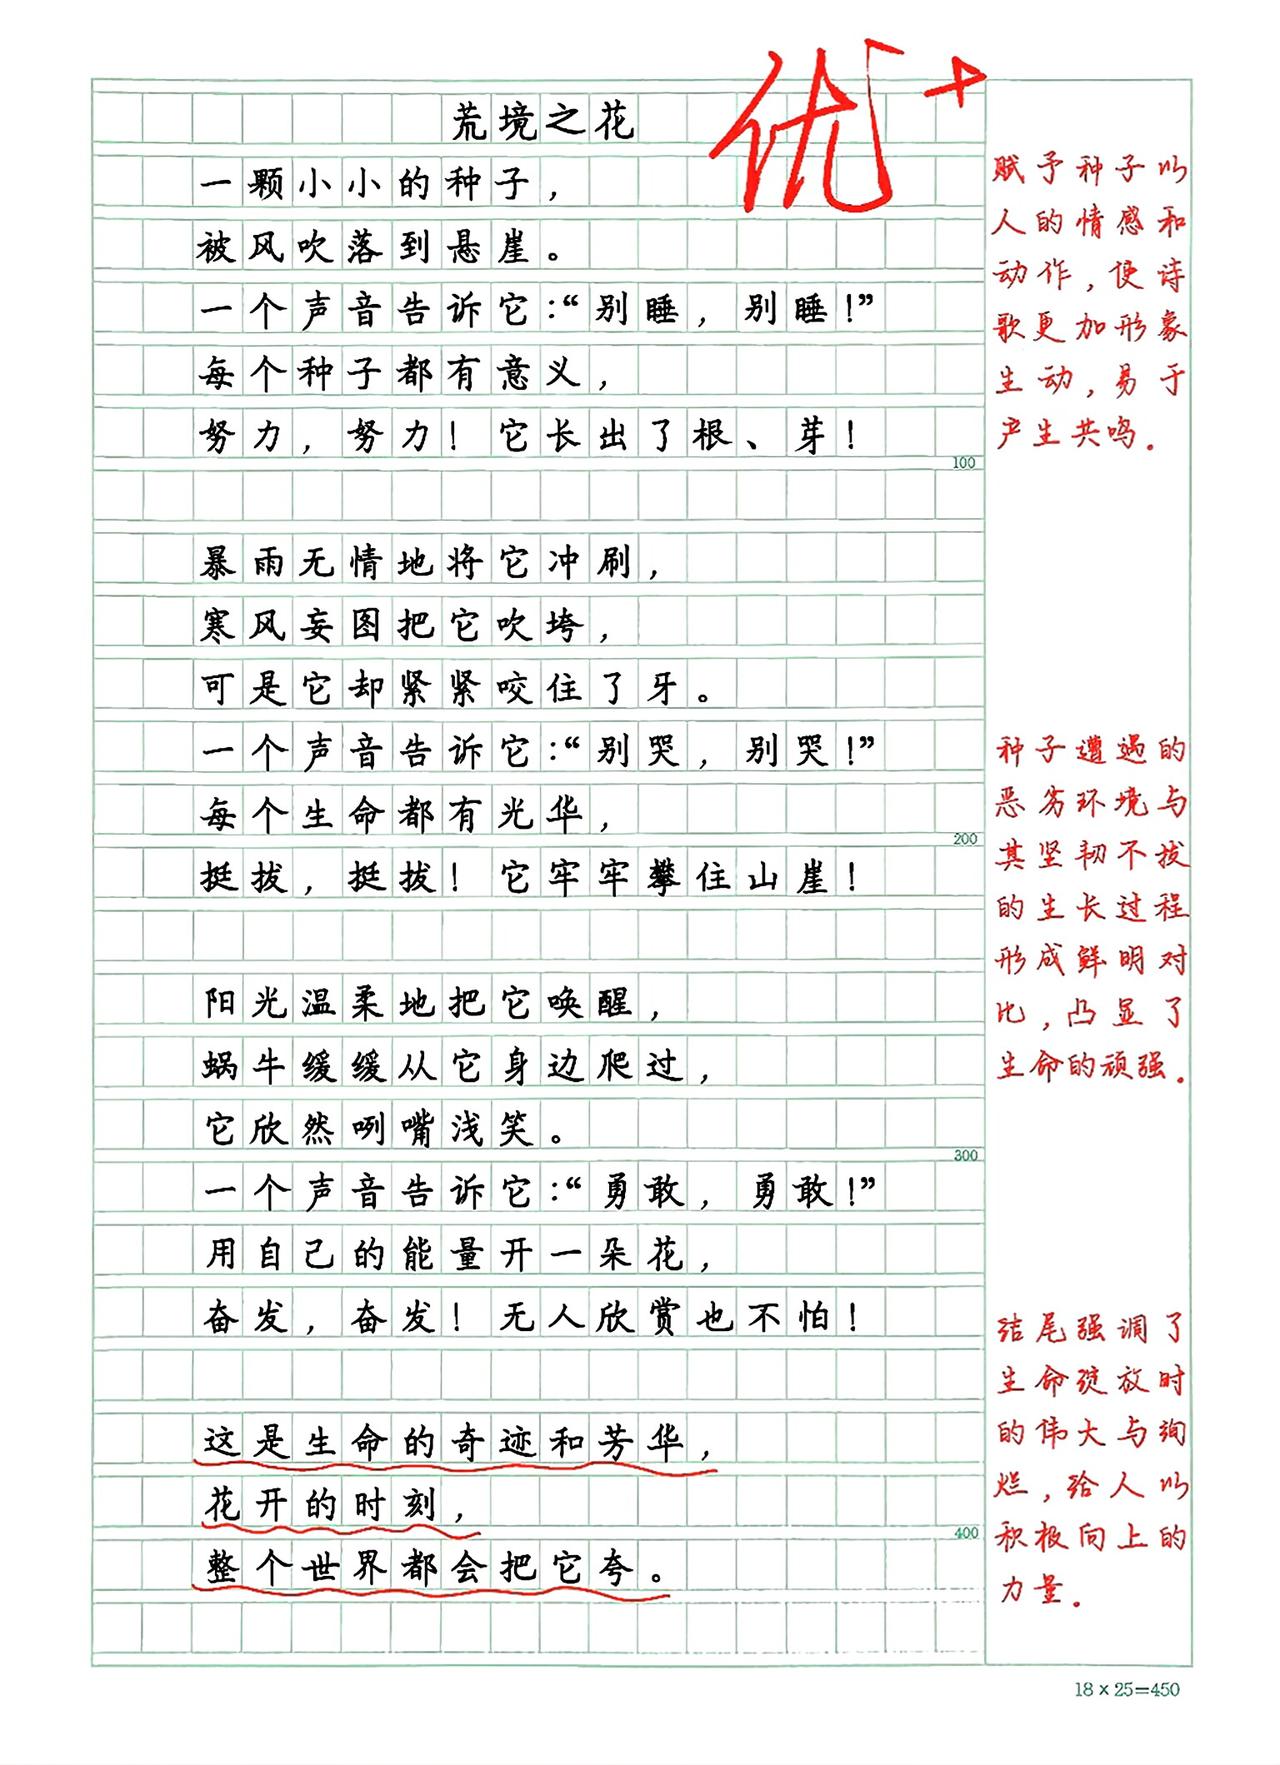 优+
荒境之花
一颗小小的种子，
被风吹落到悬崖。
一个声音告诉它：“别睡，别睡！”
每个种子都有意义，
努力，努力！它长出了根、芽！
100
暴雨无情地将它冲刷，
寒风妄图把它吹垮，
可是它却紧紧咬住了牙。
一个声音告诉它：“别哭，别哭！”
每个生命都有光华，
200
挺拔，挺拔！它牢牢攀住山崖！
阳光温柔地把它唤醒，
蜗牛缓缓从它身边爬过，
它欣然咧嘴浅笑。
300
一个声音告诉它：“勇敢，勇敢！”
用自己的能量开一朵花，
奋发，奋发！无人欣赏也不怕！
这是生命的奇迹和芳华，
花开的时刻，
400
整个世界都会把它夸。
赋予种子以
人的情感和
动作，使诗
歌更加形象
生动，易于
产生共鸣.
种子遭遇的
恶劣环境与
其坚韧不拔
的生长过程
形成鲜明对
比，凸显了
生命的顽强.
结尾强调了
生命绽放时
的伟大与绚
烂，给人以
积极向上的
力量.
18×25=450